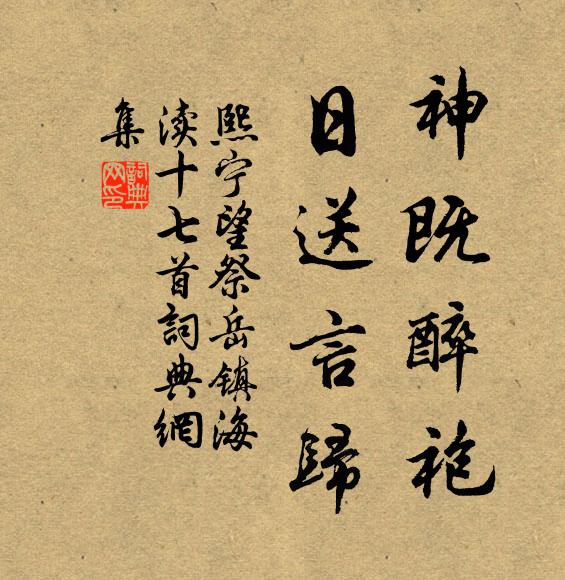 神既醉袍
日送言歸
熙宁望祭岳鎮海
渎十七首詞典網
集
詞典
网印